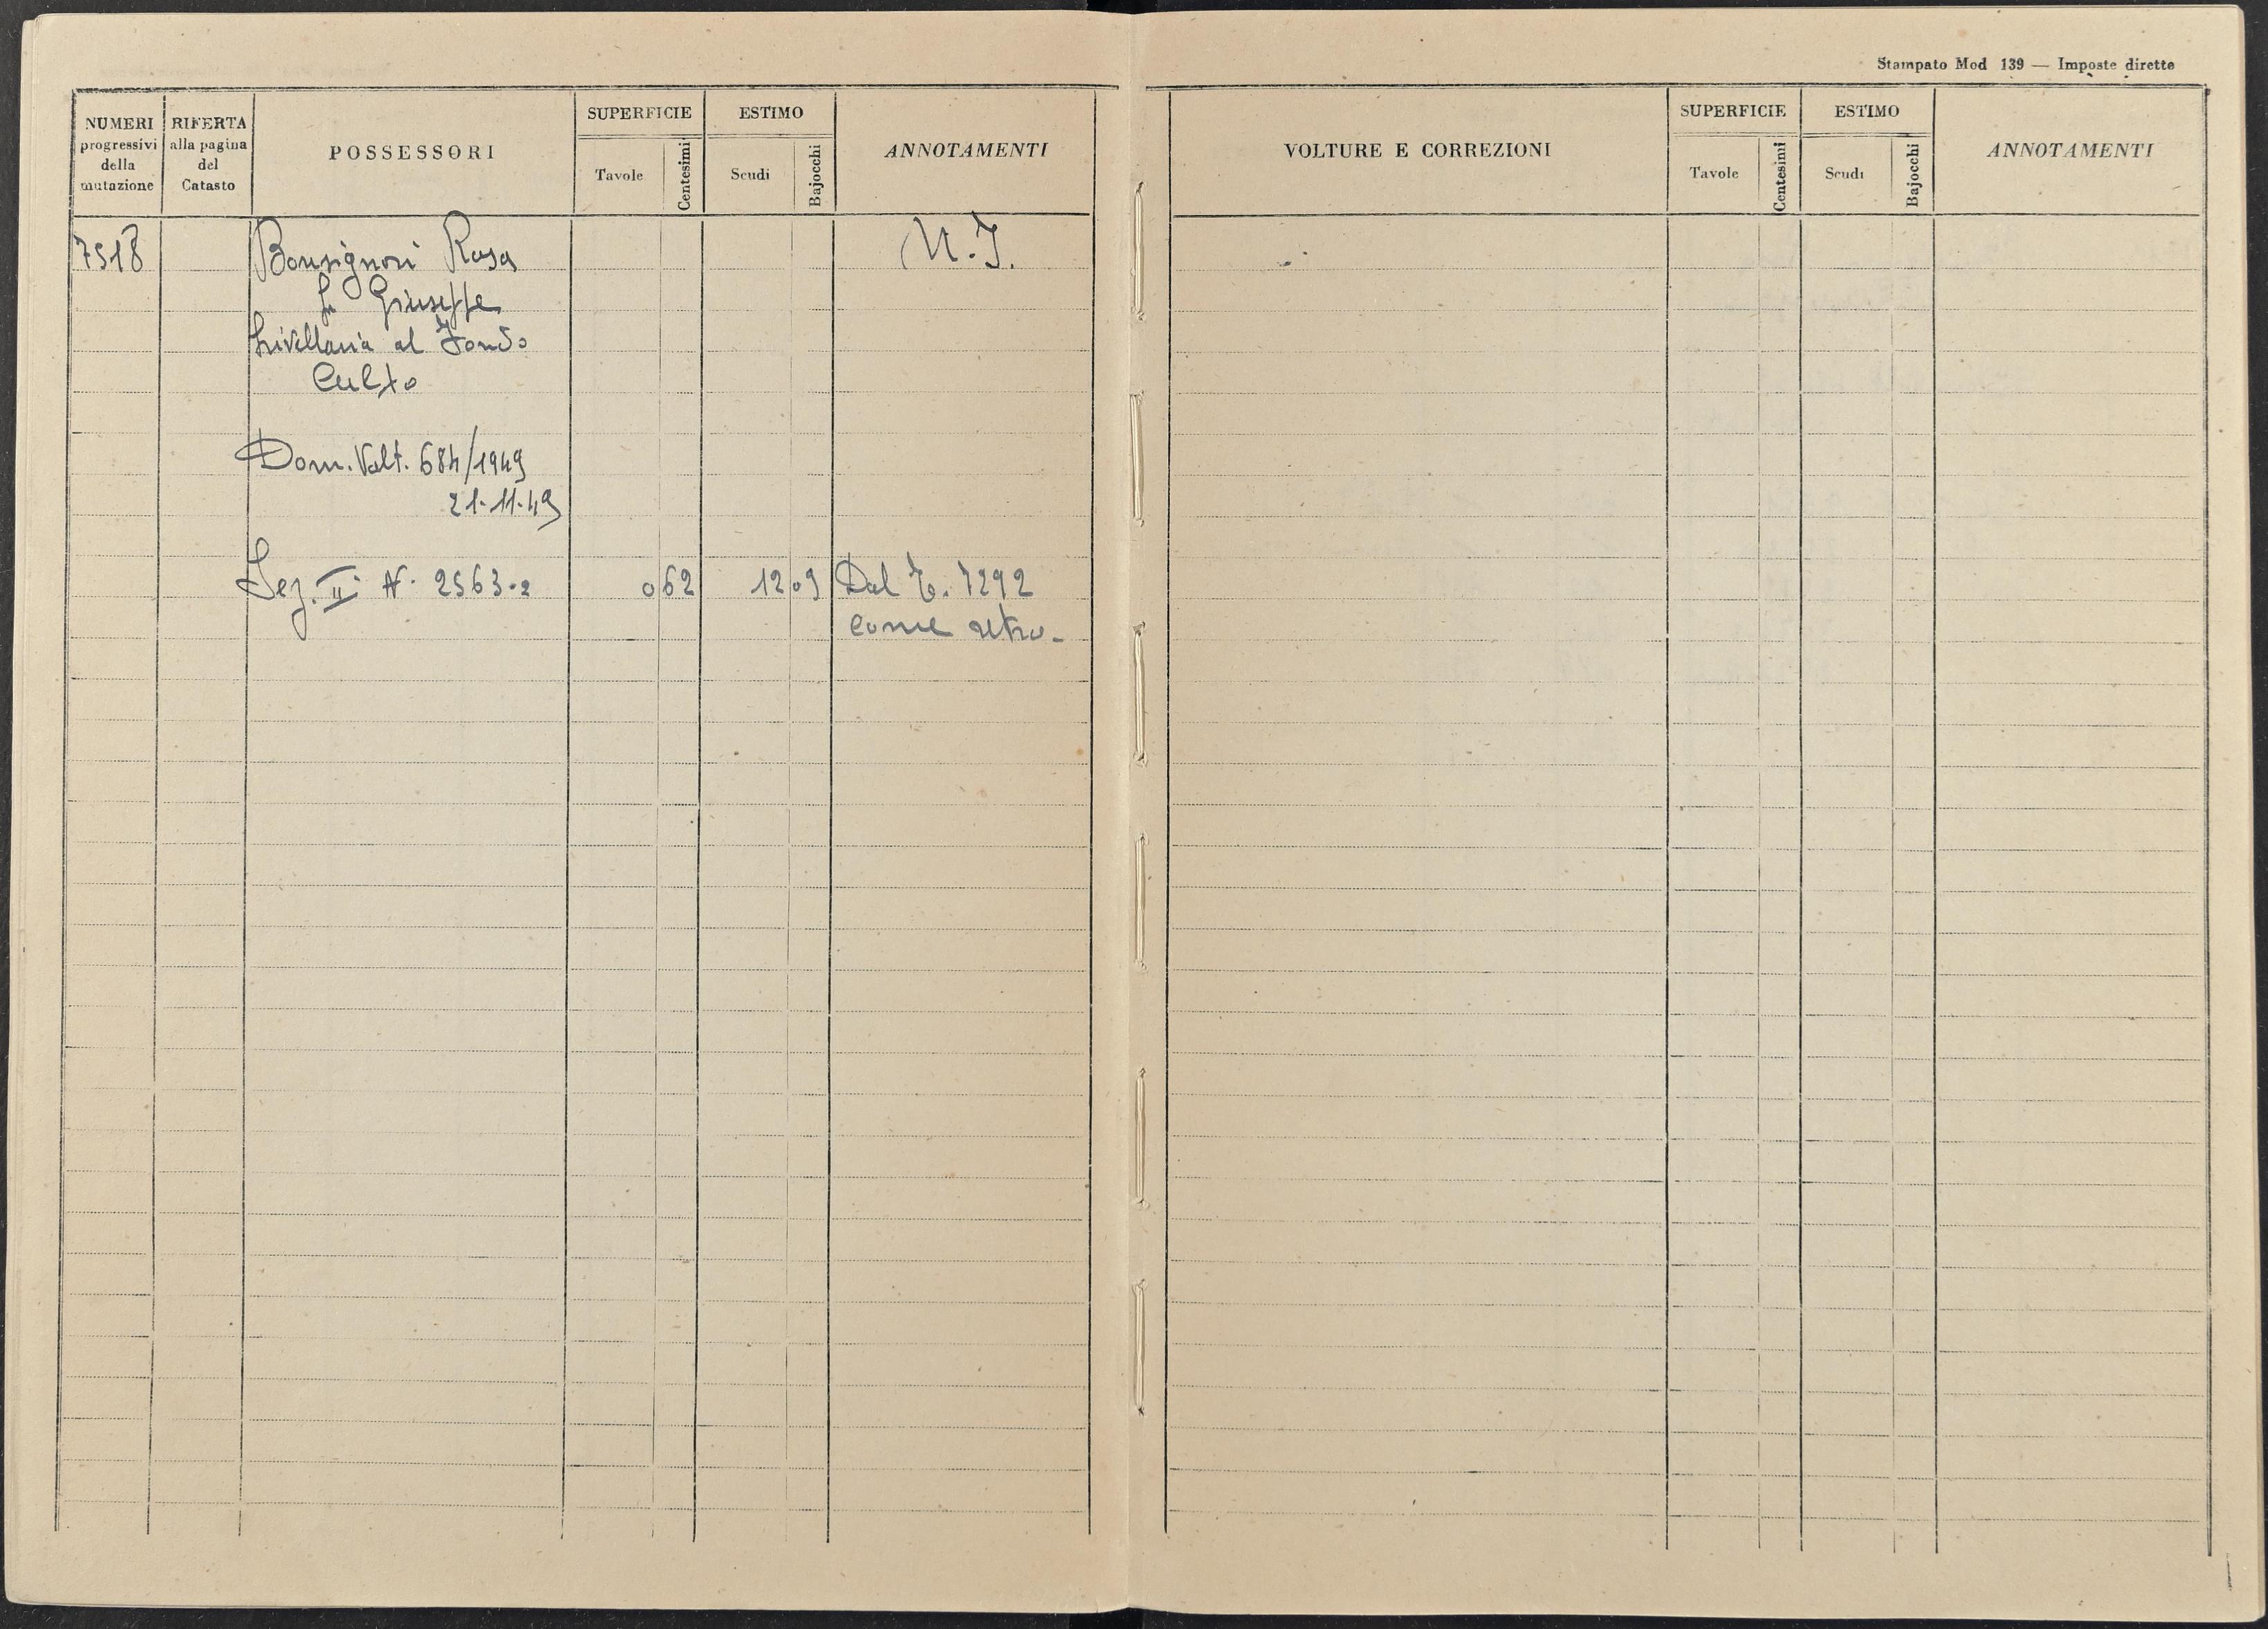 Stampato Mod 139 — Imposte dirette
NUMERI progressivi della mutazione
RIFERTA alla pagina del Catasto
POSSESSORI
SUPERFICIE
Tavole
Centesimi
ESTIMO
Scudi
Bajocchi
ANNOTAMENTI
VOLTURE E CORREZIONI
SUPERFICIE
Tavole
Centesimi
ESTIMO
Scudi
Bajocchi
ANNOTAMENTI
7518 Bonsignori Rosa
fu Giuseppe
Livellaria al Fondo
Culto
Dom. Volt. 684/1949
21-11-49
Sez. II N. 2563-2 0 62 12 09 Dal T. 7292
come retro-